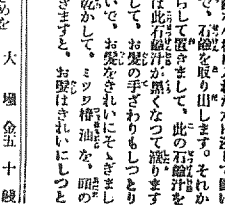 で、石鹼を取り出します。それか
らして置きまして、此の石鹼汁を
は此石鹼汁が黒くなつて濁ります
して、お髪の手ざわりもしつとり
いで、お髪をきれいにそゝぎまし
乾かして。ミツワ椿油を、頭の
ぎますと、お髪はきれいにしつと
大壜金五十錢